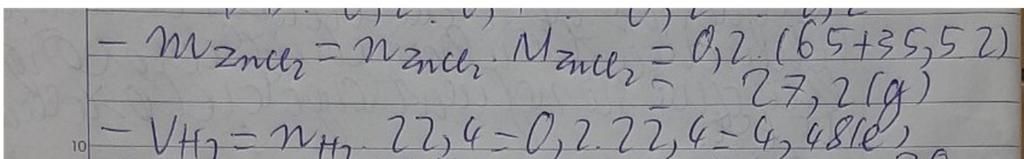 - mZnCl2 = nZnCl2 . MZnCl2 = 0,2.(65+35,52)
= 27,2(g)
10 - VH2 = nH2 . 22,4 = 0,2.22,4 = 4,48(l)